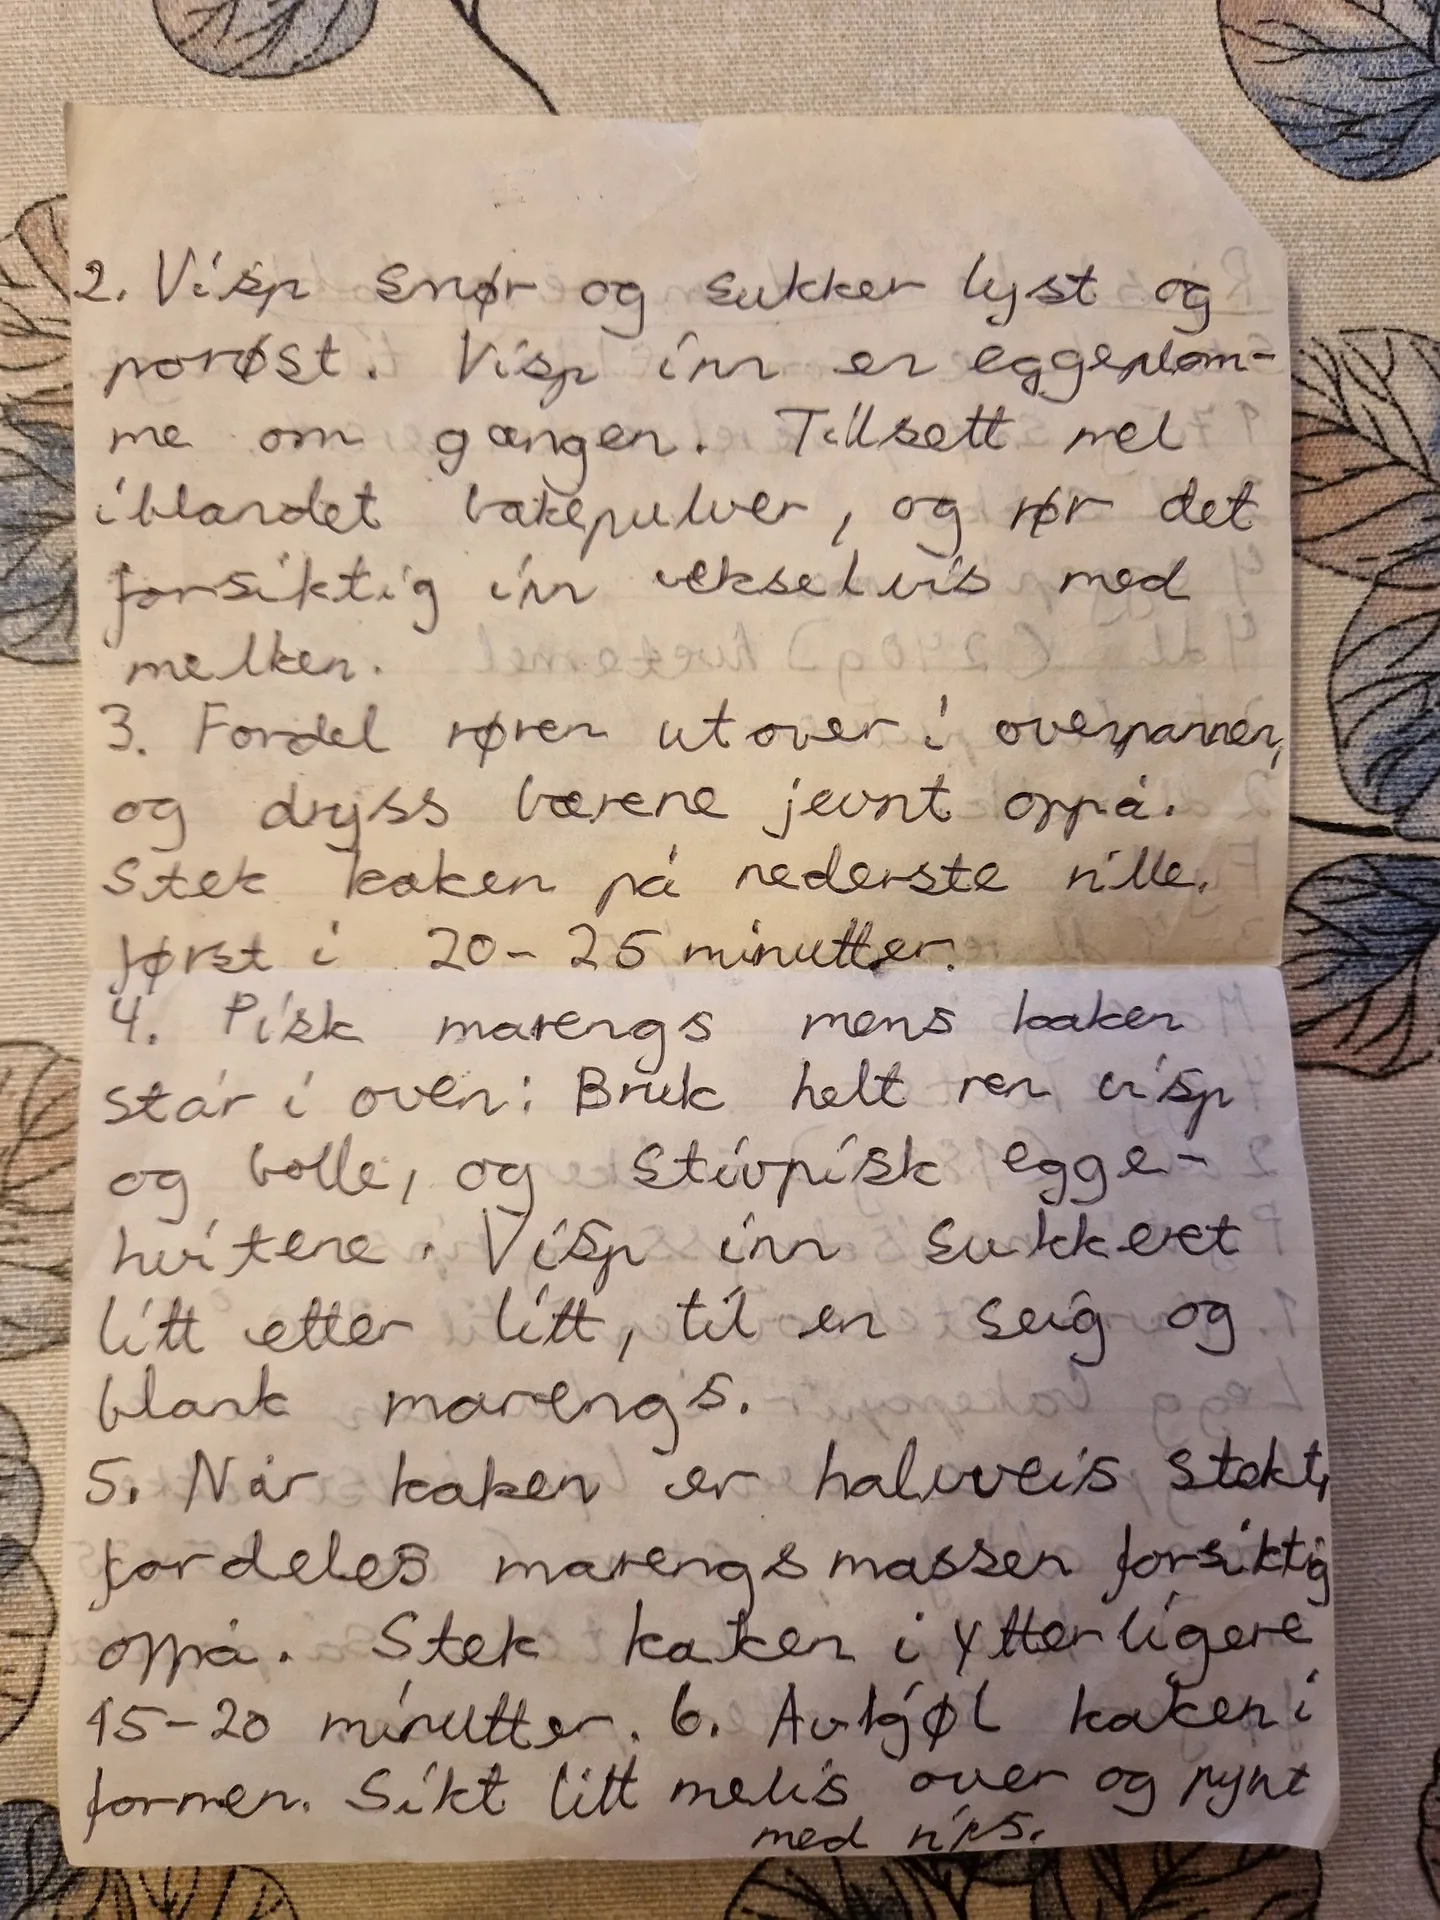 2. Visp smør og sukker lyst og
porøst. Visp inn en eggeplom-
me om gangen. Tilsett mel
iblandet bakepulver, og rør det
forsiktig inn vekselvis med
melken.
3. Fordel røren utover i ovenpannen,
og dryss bærene jevnt oppå.
Stek kaken på nederste rille.
først i 20-25 minutter.
4. Pisk marengs mens kaken
står i oven: Bruk helt ren visp
og bolle, og stivpisk egge-
hvitene. Visp inn sukkeret
litt etter litt, til en seig og
blank marengs.
5. Når kaken er halvveis stekt,
fordeles marengsmassen forsiktig
oppå. Stek kaken i ytterligere
15-20 minutter. 6. Avkjøl kaken i
formen. Sikt litt melis over og pynt
med rips.